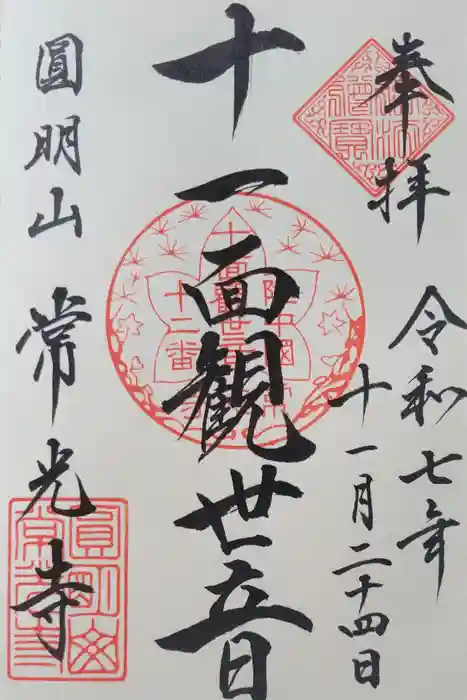 奉拝
令和七年
十一月二十四日
十一面観世音
圓明山 常光寺
十二番